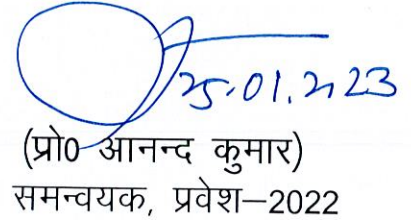 25.01.2023
(प्रो0 आनन्द कुमार)
समन्वयक, प्रवेश–2022